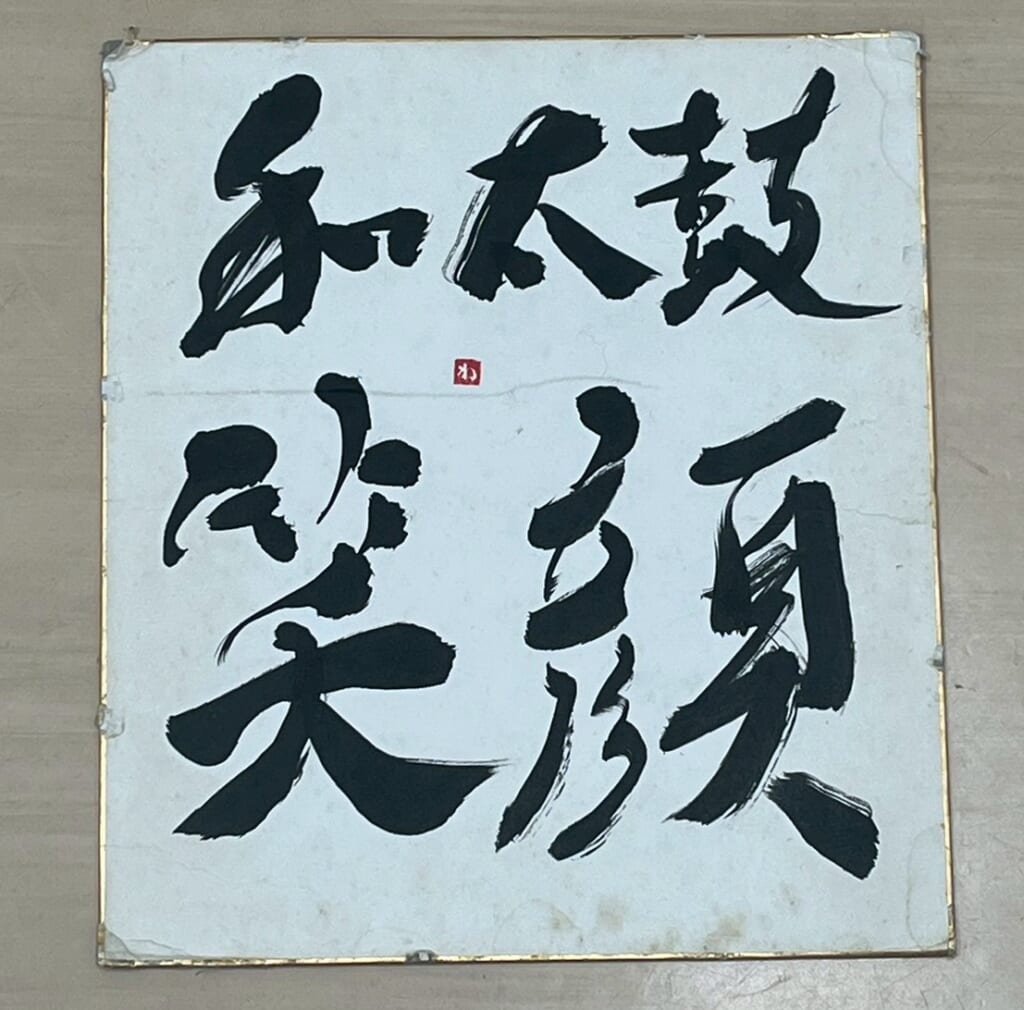 和太鼓
笑顔